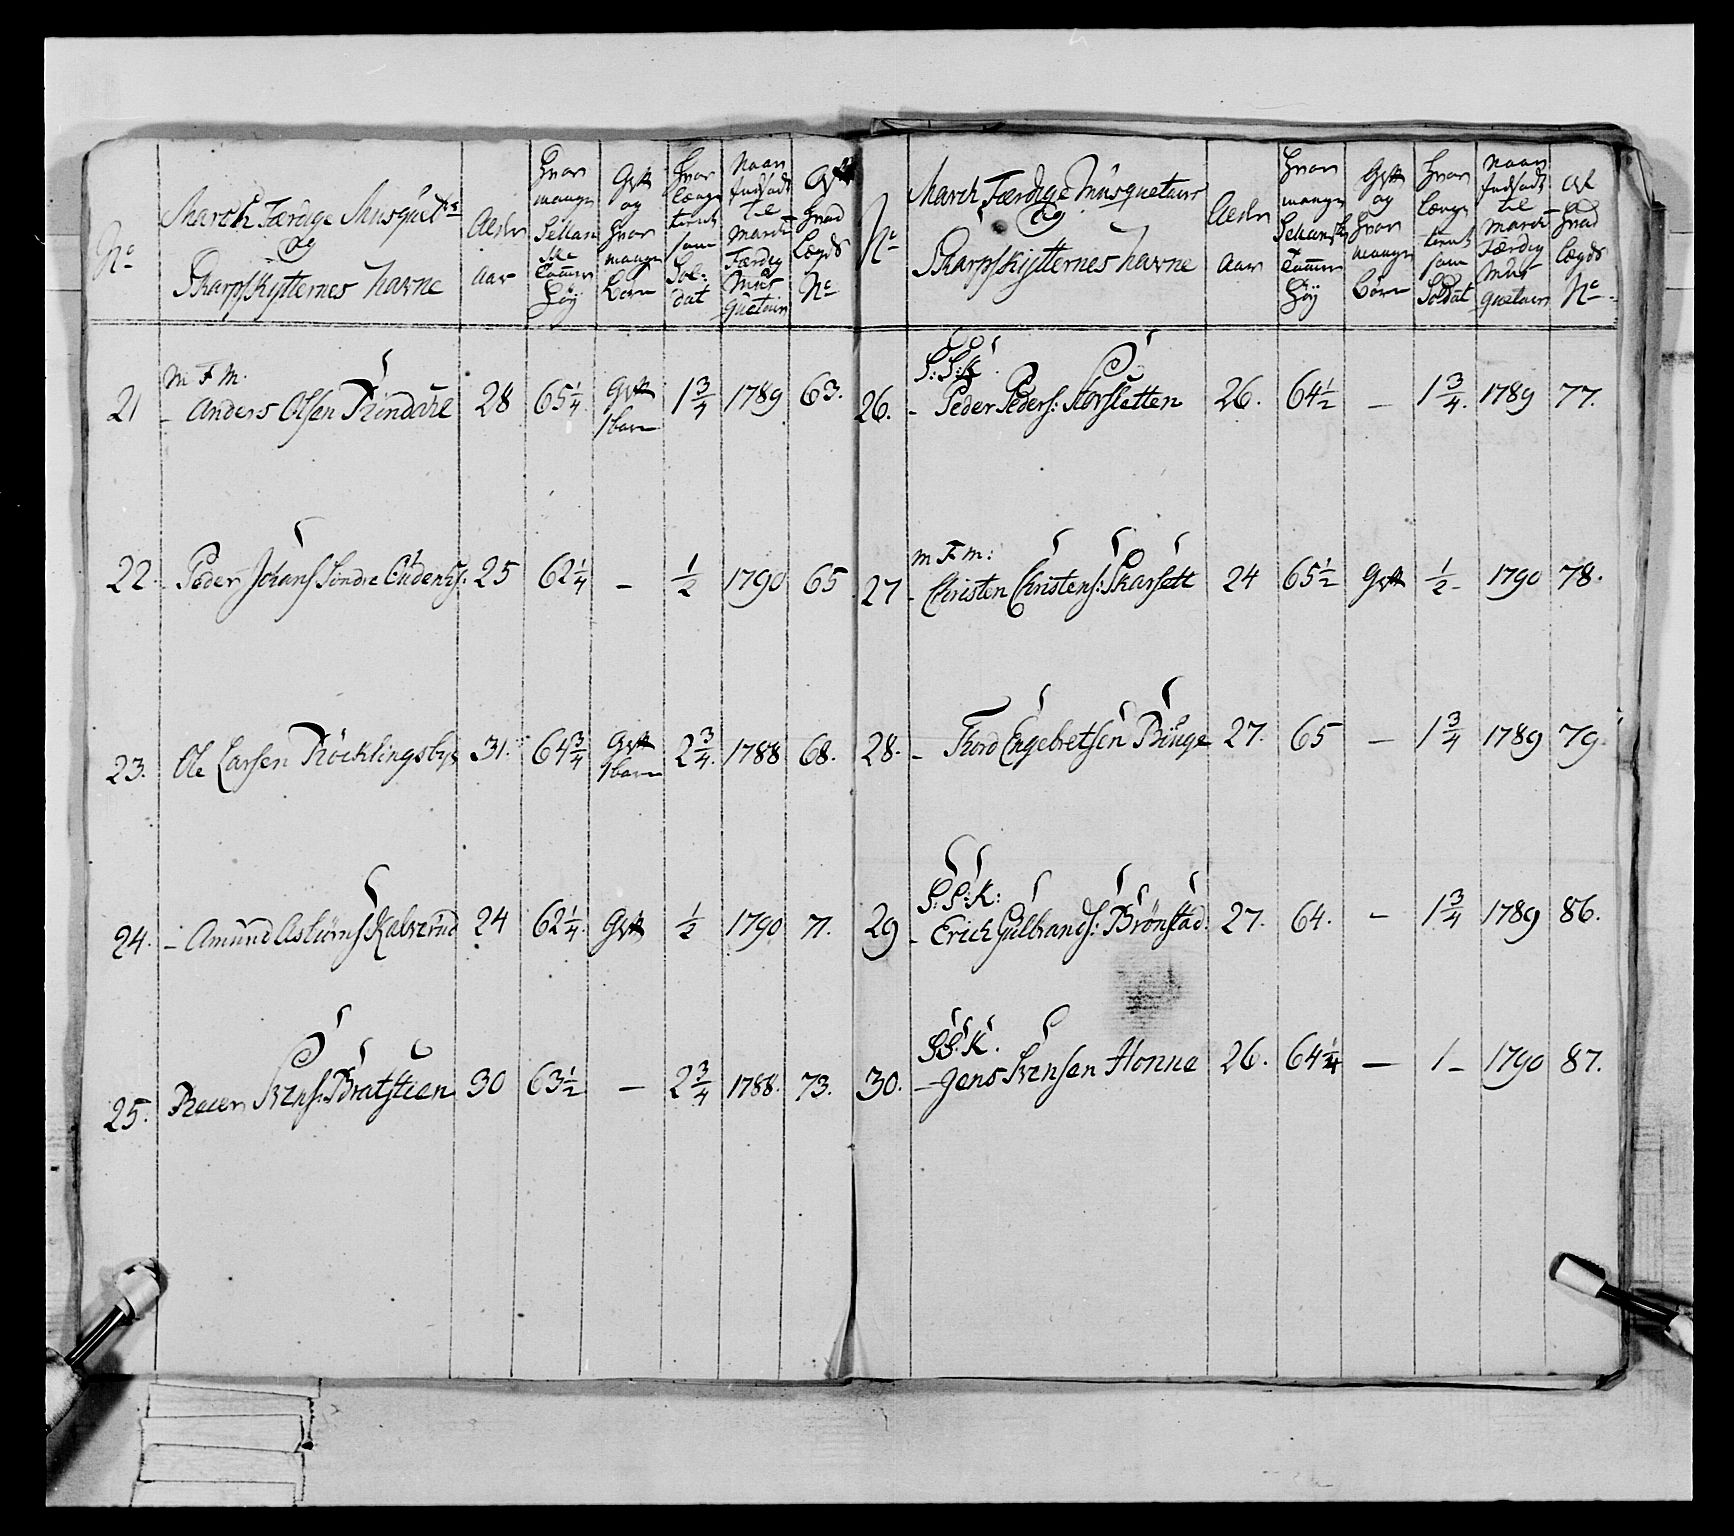 No
March Færdige Musquet:rs
og
Skarpskytternes Navne
Alder
Aar
Hvor mange Sellandske Tommer Høy
Gvt og Hvor mange Børn
Hvor Længe tient som Soldat
Naar Indsadt til March Færdig Musquetair
Af Hvad Lægds No
21 m F m. - Anders Olsen Trindahl 28 65 1/4 Gvt 1 barn 1 3/4 1789 63.
22. Peder Johans Søndre Eudenes: 25 62 1/4 - 1/2 1790 65
23. Ole Larsen Röcklingsbye 31. 64 3/4 Gvt 1 barn 2 3/4. 1788 68.
24. - Amund Asbiörns Kalverud 24 62 1/4 Gvt 1/2 1790 71.
25. Svens: Bratstien 30 63 1/2 - 2 3/4 1788. 73.
No
March Færdige Musquetair
og
Skarpskytternes Navne
Alder
Aar
Hvor mange Sellandske Tommer Høy
Gvt og Hvor mange Børn
Hvor Længe tient som Soldat
Naar Indsadt til March Færdig Musquetair
Af Hvad Lægds No
26. S: S: K. - Peder Peders: Storsletten 26. 64 1/2 - 1 3/4. 1789 77.
27 m F m: - Christen Christens: Skarsett 24 65 1/2 Gvt 1/2 - 1790 78.
28. - Tord Engebretsen Binge 27. 65 - 1 3/4 1789 79.
29 S: S: K: - Erich Gulbrands: Brönstad. 27. 64. - 1 3/4 1789 86.
30. S S: K. - Jens Svensen Honne 26. 64 1/4 - 1 - 1790 87.